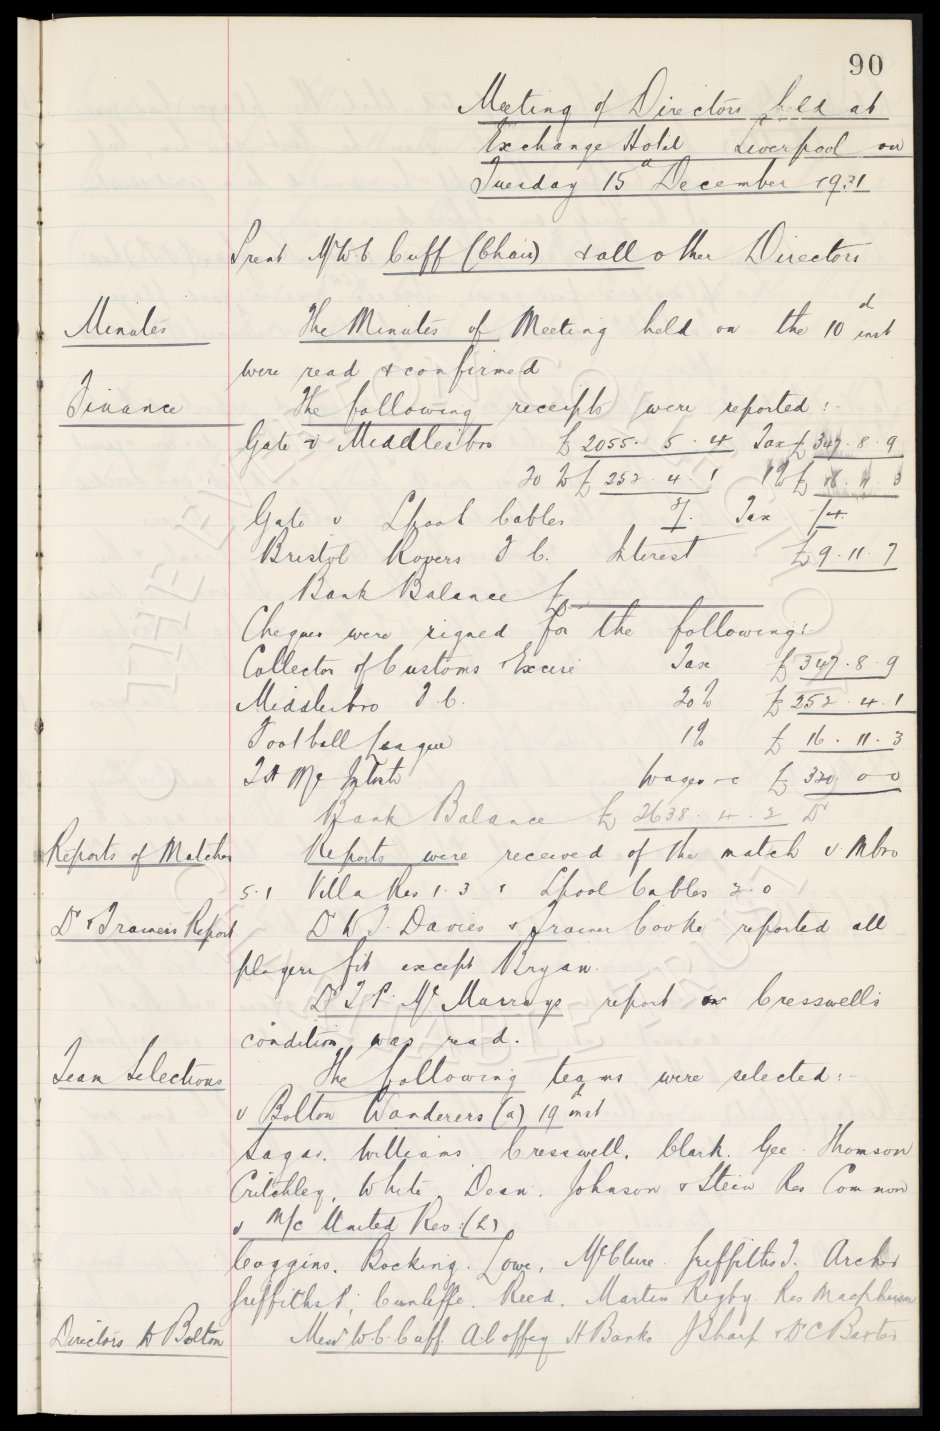 90
Meeting of Directors held at
Exchange Hotel Liverpool on
Tuesday 15th December 1931
Present Mr W.C. Cuff (Chair) & all other Directors
Minutes The Minutes of Meeting held on the 10d inst
were read & confirmed
Finance The following receipts were reported :-
Gate v Middlesbro £2055. 5. 4 Tax £347. 8. 9
20 % £ 252. 4. 1 1% £ 16. 11. 3
Gate v Lpool Cables Tax /4.
Bristol Rovers F C. Interest £9. 11. 7
Bank Balance £
Cheques were signed for the following:
Collector of Customs & Excise Tax £347. 8. 9
Middlesbro F. C. 20 % £252. 4. 1
Football League 1% £ 16. 11. 3
T H Mc Intosh Wages &c £ 320. 0 0
Bank Balance £ 2638. 4. 2 Dr
Reports of Matches Reports were received of the match v. Mbro
5.1 Villa Res 1. 3 & Lpool Cables 2. 0
Dr & Trainers Report Dr W.J. Davies & Trainer Cooke reported all
players fit except Bryan.
Dr T.P. Mc Murrays report on Cresswells
condition was read.
Team Selections The following teams were selected :-
v Bolton Wanderers (a) 19th inst
Sagar. Williams Cresswell. Clark. Gee. Thomson
Critchley. White. Dean. Johnson & Stein Res Common
v M/c United Res. (h)
Coggins. Bocking. Lowe. McClure. Griffiths T. Archer
Griffiths P. Cunliffe. Reed. Martin Rigby. Res Macpherson
Directors to Bolton Messrs W.C. Cuff A Coffey H Banks J Sharp & Dr C Baxter
THE EVERTON
COLLECTION
CHARITABLE TRUST